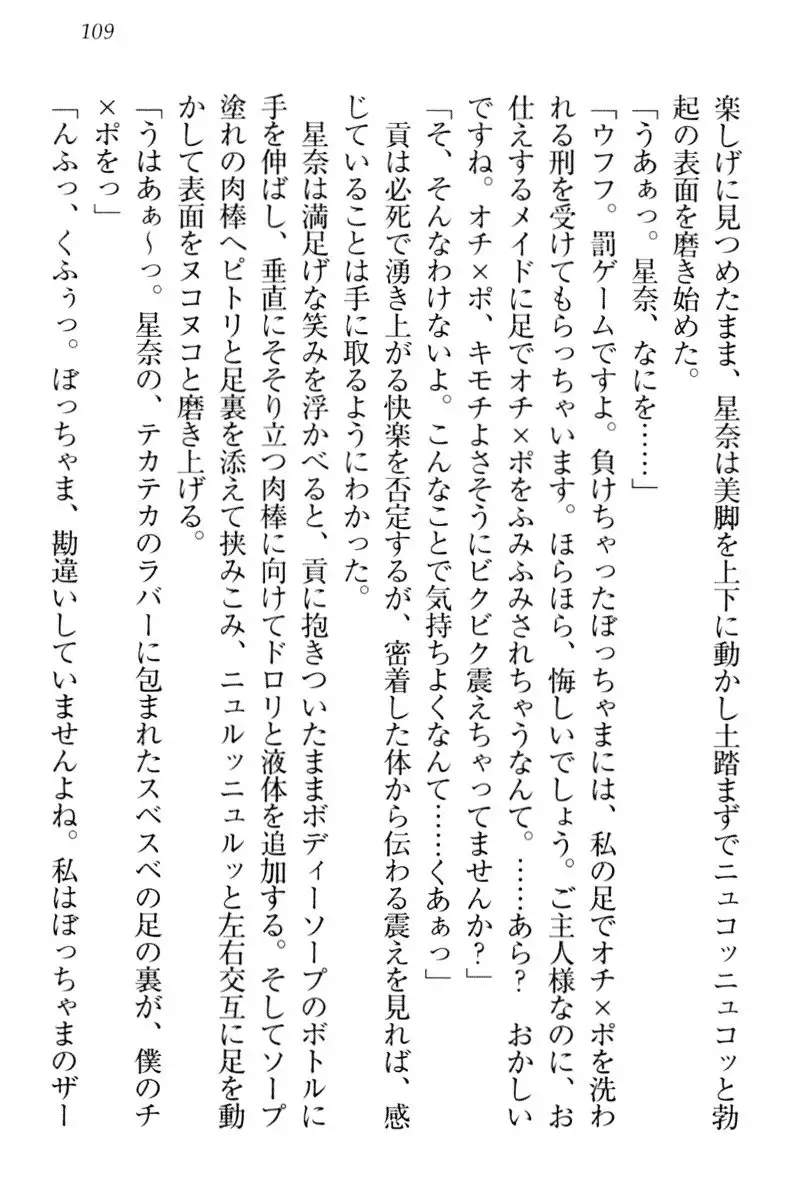 109
楽しげに見つめたまま、星奈は美脚を上下に動かし土踏まずでニュコッニュコッと勃
起の表面を磨き始めた。
「うあぁっ。星奈、なにを……」
「ウフフ。罰ゲームですよ。負けちゃったぼっちゃまには、私の足でオチ×ポを洗わ
れる刑を受けてもらっちゃいます。ほらほら、悔しいでしょう。ご主人様なのに、お
仕えするメイドに足でオチ×ポをふみふみされちゃうなんて。……あら?　おかしい
ですね。オチ×ポ、キモチよさそうにビクビク震えちゃってませんか?」
「そ、そんなわけないよ。こんなことで気持ちよくなんて……くあぁっ」
　貢は必死で湧き上がる快楽を否定するが、密着した体から伝わる震えを見れば、感
じていることは手に取るようにわかった。
　星奈は満足げな笑みを浮かべると、貢に抱きついたままボディーソープのボトルに
手を伸ばし、垂直にそそり立つ肉棒に向けてドロリと液体を追加する。そしてソープ
塗れの肉棒へピトリと足裏を添えて挟みこみ、ニュルッニュルッと左右交互に足を動
かして表面をヌコヌコと磨き上げる。
「うはあぁ〜っ。星奈の、テカテカのラバーに包まれたスベスベの足の裏が、僕のチ
×ポをっ」
「んふっ、くふぅっ。ぼっちゃま、勘違いしていませんよね。私はぼっちゃまのザー